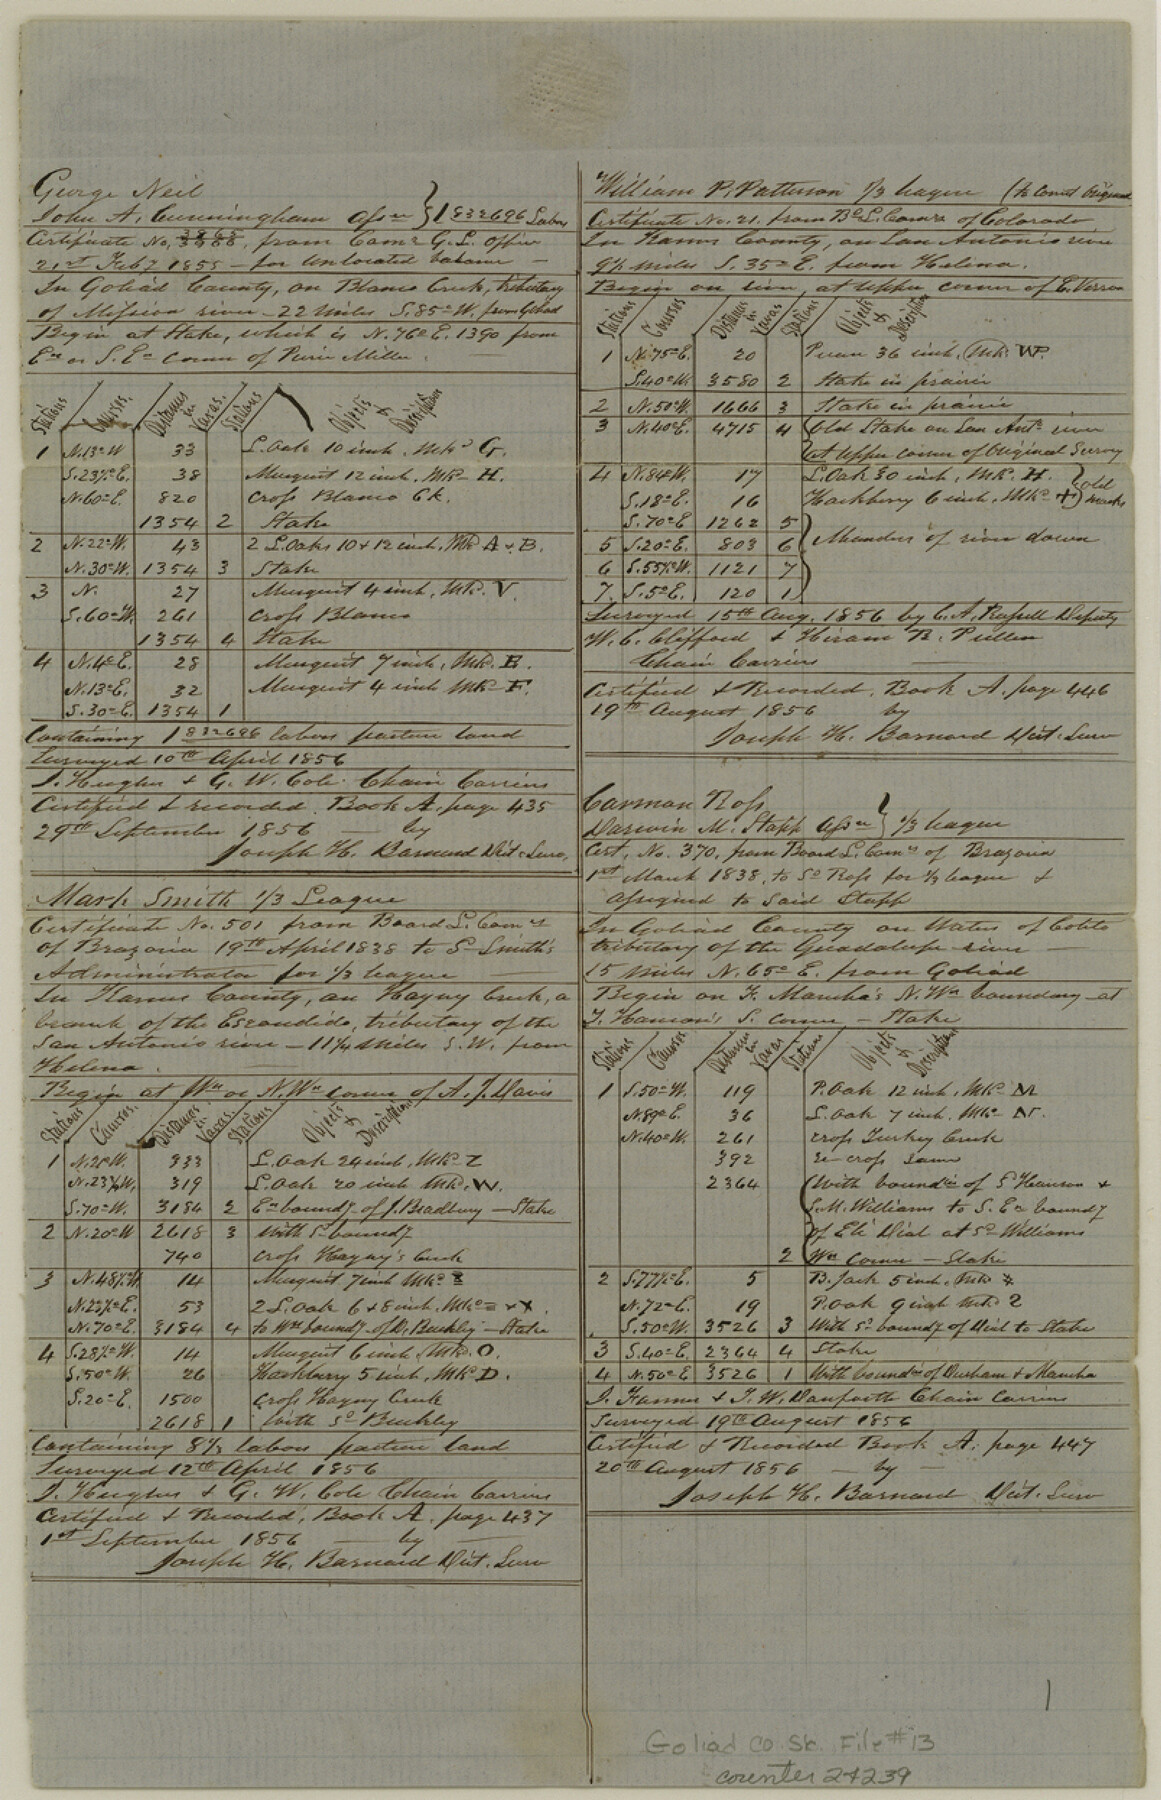 George Neil
John A. Cunningham Assee } 1 832696 Labor
Certificate No. 3263/3388, from Comr. G. L. Office
21st Feby 1855 – for Unlocated balance –
In Goliad County, on Blanco Creek, tributary
of Mission river – 22 miles S. 85° W. from Goliad
Begin at Stake, which is N. 76° E. 1390 from
En or S. En corner of Miller.
Stations Courses. Distances in Varas. Stations Objects & Description
1 N. 13° W 33 L. Oak 10 inch. mkd G.
S. 23½° E. 38 Musquit 12 inch. mkd H.
N. 60° E. 820 cross Blanco Ck.
1354 2 Stake
2 N. 22° W. 43 2 L. Oaks 10 & 12 inch, mkd A & B.
N. 30° W. 1354 3 Stake
3 N. 27 Musquit 4 inch. mkd. V.
S. 60° W. 261 cross Blanco
1354 4 Stake
4 N. 4° E. 28 Musquit 7 inch, mkd. E.
N. 13° E. 32 Musquit 4 inch mkd F.
S. 30° E. 1354 1
Containing 1 832696 labors pasture land
Surveyed 10th April 1856
J. Hughes & G. W. Cole Chain Carriers
Certified & recorded. Book A. page 435
29th September 1856 — by
Joseph H. Barnard Dist. Surv.
Mark Smith 1/3 League
Certificate No. 501 from Board L. Comrs
of Brazoria 19th April 1838 to Sd Smith's
Administrator for 1/3 league —
In Karnes County, on Hayny Creek, a
branch of the Escondido, tributary of the
San Antonio river – 11¼ miles S. W. from
Helena.
Begin at Wn or N. Wn corner of A. J. Davis
Stations Courses. Distances in Varas. Stations Objects & Description
1 N. 21° W. 333 L. Oak 24 inch, mkd Z
N. 23½ W. 319 L. Oak 20 inch mkd. W.
S. 70° W. 3184 2 En boundy of J. Bradbury – Stake
2 N. 20° W 2618 3 With Sd boundy
740 cross Haynys Creek
3 N. 48½ W 14 Musquit 7 inch mkd Z
N. 22½° E. 53 2 L. Oak 6 & 8 inch. mkd = & X.
N. 70° E. 3184 4 to Wn boundy of D. Buckley – Stake
4 S. 28½° W. 14 Musquit 6 inch, mkd. O.
S. 50° W. 26 Hackberry 5 inch, mkd D.
S. 20° E. 1500 cross Haynys Creek
2618 1 With Sd Buckley
Containing 8⅓ labors pasture land
Surveyed 12th April 1856
J. Hughes & G. W. Cole Chain Carriers
Certified & Recorded, Book A. page 437
1st September 1856 — by —
Joseph H. Barnard Dist. Surv
William P. Patterson 1/3 league (to Correct Original
Certificate No. 21. from Bd L. Comrs of Colorado
In Karnes County, on San Antonio river
9½ miles S. 35° E. from Helena.
Begin on river, at upper corner of E.
Stations Courses Distances in Varas Stations Objects & Description
1 N. 75° E. 20 Pecan 36 inch, mkd. WP.
S. 40° W. 3580 2 Stake in prairie
2 N. 50° W. 1666 3 Stake in prairie
3 N. 40° E. 4715 4 Old Stake on San Anto river
at Upper corner of Original Survey
4 N. 84° W. 17 L. Oak 30 inch, mkd. H.
S. 18° E. 16 Hackberry 6 inch, mkd + } old marks
S. 70° E 1262 5
5 S. 20° E. 803 6 Meanders of river down
6 S. 55½° W. 1121 7
7. S. 5° E. 120 1
Surveyed 15th Aug. 1856 by C. A. Russell Deputy
W. C. Clifford & Hiram R. Pullen
Chain Carriers —
Certified & Recorded, Book A. page 446
19th August 1856 by
Joseph H. Barnard Dist. Surv
Carman Ross
Darwin M. Stapp Assee } 1/3 league
Cert. No. 370, from Board L. Comrs of Brazoria
1st March 1838, to Sd Ross for 1/3 league &
assigned to said Stapp
In Goliad County on Waters of Coleto
tributary of the Guadalupe river
15 miles N. 65° E. from Goliad
Begin on F. Mancha's N. Wn boundary at
J. Hanson's S. corner – Stake
Stations Courses Distances in Varas Stations Objects & Description
1 S. 50° W. 119 P. Oak 12 inch, mkd M
N. 89° E. 36 L. Oak 7 inch, mkd N.
N. 40° W. 261 cross Turkey Creek
392 re-cross same
2364 With boundies of Sd Hanson &
S. M. Williams to S. En boundy
of Eli Dial at Sd Williams
2 Wn corner – Stake
2 S. 77½° E. 5 B. Jack 5 inch, mkd 4
N. 72° E. 19 P. Oak 9 inch mkd 2
S. 50° W. 3526 3 With Sd boundy of Dial to Stake
3 S. 40° E. 2364 4 Stake
4 N. 50° E 3526 1 With boundies of Durham & Mancha
J. Hanner & J. W. Danforth Chain Carriers
Surveyed 19th August 1856
Certified & Recorded Book A. page 447
20th August 1856 — by —
Joseph H. Barnard Dist. Surv
1
Goliad Co. Sk. File #13
counter 24239